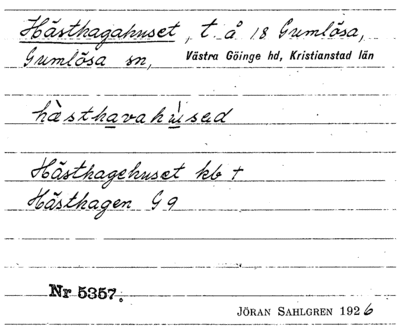 Hästhagahuset, t. å 18 Gumlösa,
Gumlösa sn, Västra Göinge hd, Kristianstad län
hàsthavahùsed
Hästhagehuset kb †
Hästhagen G 9
Nr 5357.
JÖRAN SAHLGREN 1926